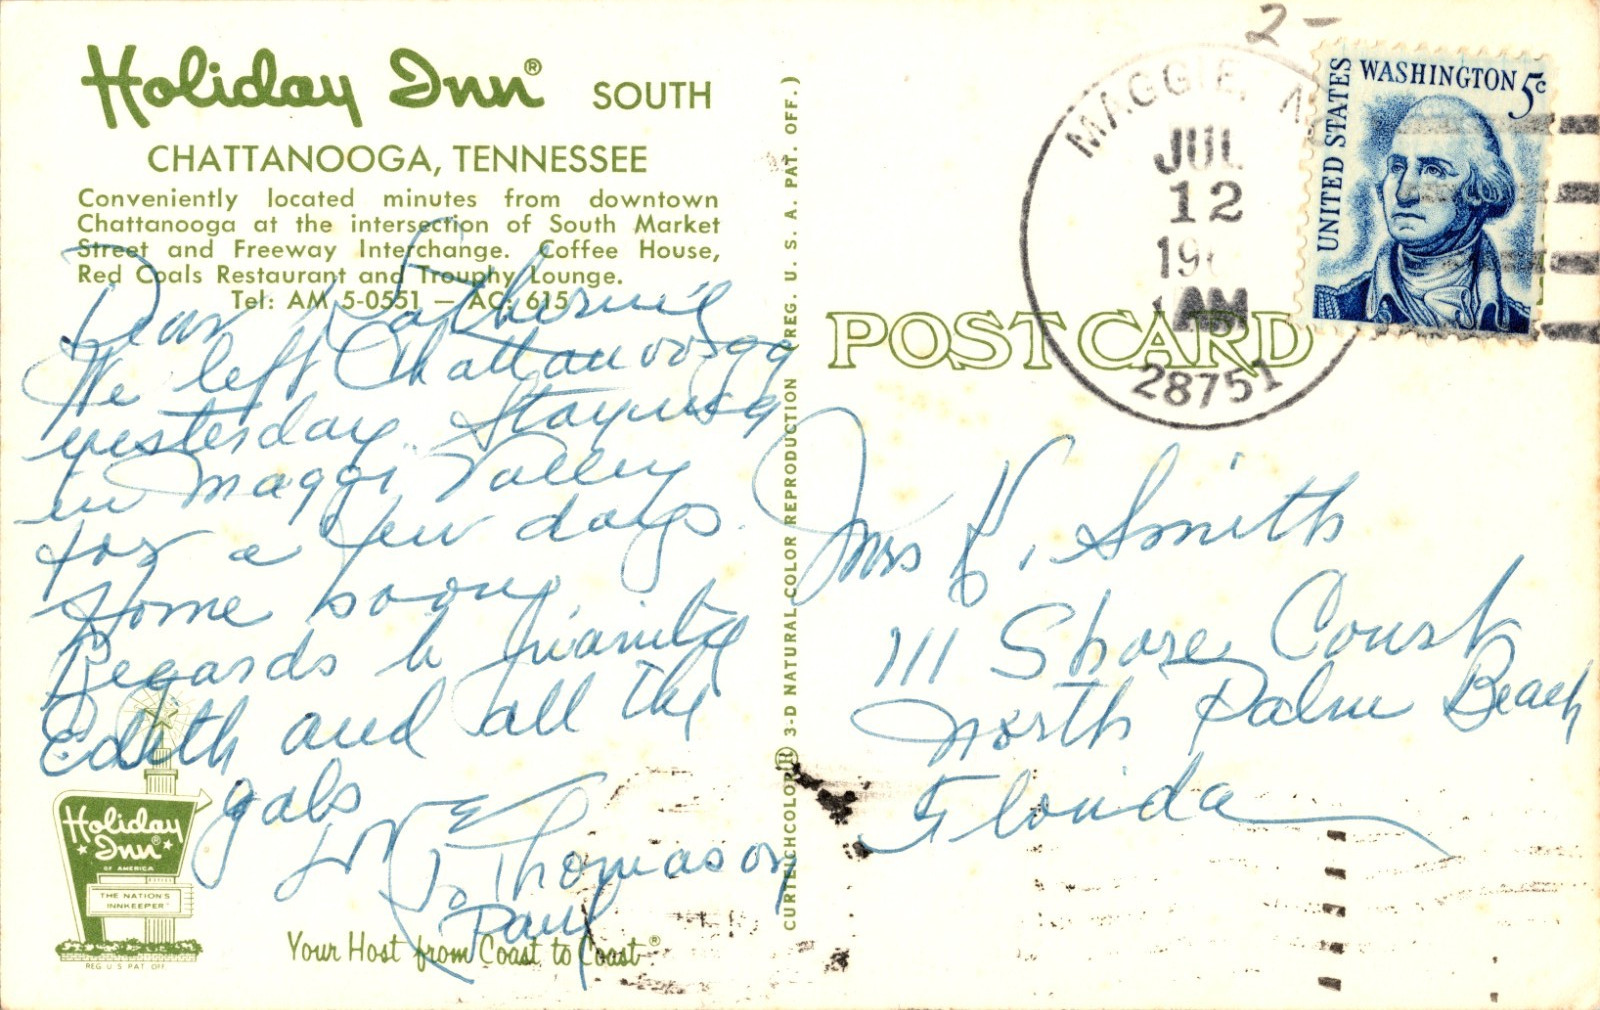 Holiday Inn® SOUTH
CHATTANOOGA, TENNESSEE
Conveniently located minutes from downtown
Chattanooga at the intersection of South Market
Street and Freeway Interchange. Coffee House,
Red Coals Restaurant and Trouphy Lounge.
Tel: AM 5-0551 — AC: 615
Dear Katherine
We left Chattanooga
yesterday. Staying
in Maggi Valley
for a few days
Home soon.
Regards to
Edith and all the
gals
Thomason
Paul
Holiday
Inn®
OF AMERICA
THE NATION'S
INNKEEPER
REG U S PAT OFF
Your Host from Coast to Coast®
CURTEICHCOLOR® 3-D NATURAL COLOR REPRODUCTION (REG. U. S. A. PAT. OFF.)
2-
MAGGIE, N
JUL
12
19
AM
28751
UNITED STATES
WASHINGTON 5c
POST CARD
Mrs K. Smith
111 Shore Court
North Palm Beach
Florida